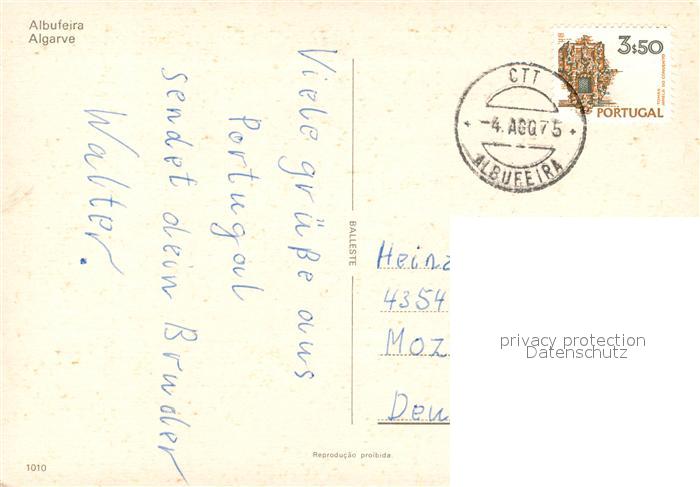 Albufeira
Algarve
Viele grüße aus
Portugal
sendet dein Bruder
Walter.
BALLESTE
3$50
PORTUGAL
CTT
-4.AGO.75
ALBUFEIRA
Heinz
4354
Moz
Deu
privacy protection
Datenschutz
Reprodução proibida.
1010